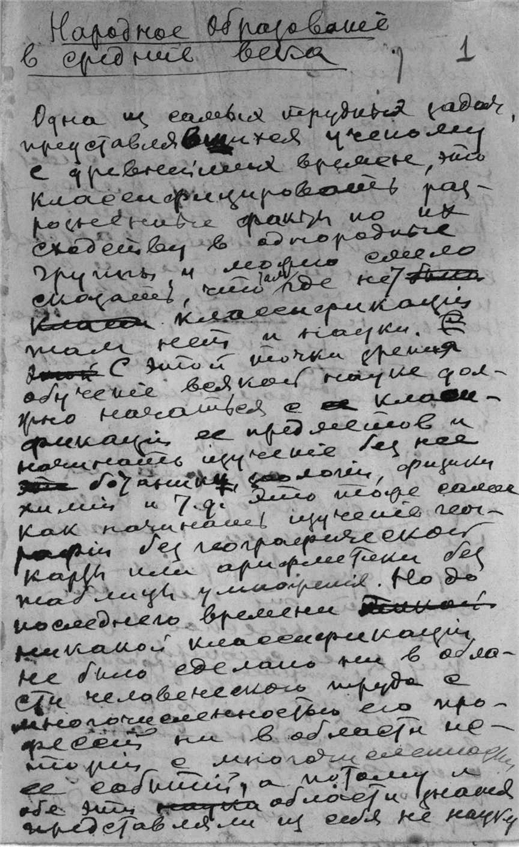 Народное Образованіе
в средніе века
1
Одна из самых трудных задач,
представлявшихся ученому
с древнейших времен, это
классифицировать раз-
розненные факты по их
сходству в однородные
группы, и можно смело
сказать, что там где нет
классификаціи
там нет и науки.
С этой точки зрения
обученіе всякой науке дол-
жно начаться с класси-
фикаціи ее предметов и
начинать изученіе без нее
ботаники, зоологіи, физики
химіи и т.д. это тоже самое
как начинать изученіе гео-
графіи без географической
карты или арифметики без
таблицы умноженія. Но до
последнего времени
никакой классификаціи
не было сделано ни в обла-
сти человеческого труда с
многочисленностью его про-
фессій ни в области ис-
торіи с многочисленностью
ее событий, а потому и
обе эти области знания
представляли из себя не науку